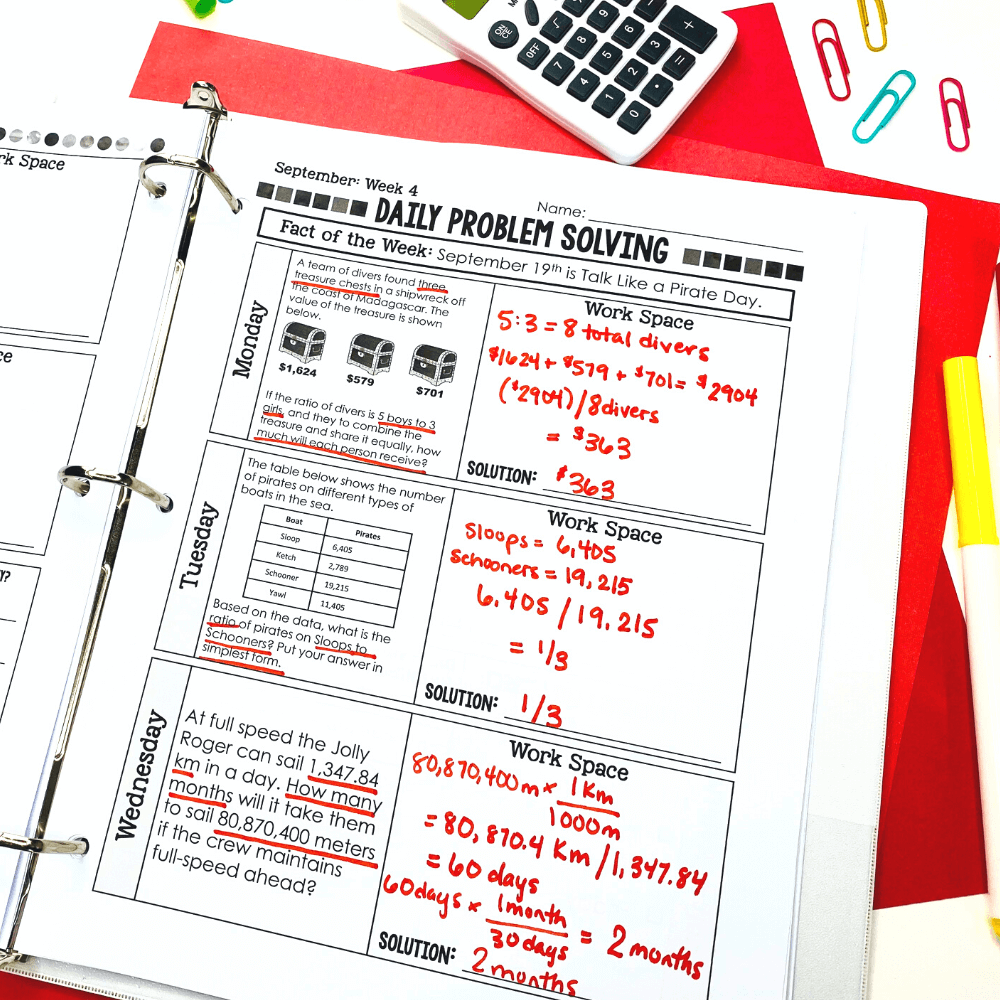 rk Space
ce
Y?
ON
C/CE
OFF
√
9
6
3
+
8
5
2
=
7
4
1
0
September: Week 4
Name:
DAILY PROBLEM SOLVING
Fact of the Week: September 19th is Talk Like a Pirate Day.
Monday
A team of divers found three
treasure chests in a shipwreck off
the coast of Madagascar. The
value of the treasure is shown
below.
$1,624
$579
$701
If the ratio of divers is 5 boys to 3
girls, and they to combine the
treasure and share it equally, how
much will each person receive?
Work Space
5:3 = 8 total divers
$1624 + $579 + $701 = $2904
($2904)/8divers
= $363
SOLUTION: $363
Tuesday
The table below shows the number
of pirates on different types of
boats in the sea.
Boat Pirates
Sloop 6,405
Ketch 2,789
Schooner 19,215
Yawl 11,405
Based on the data, what is the
ratio of pirates on Sloops to
Schooners? Put your answer in
simplest form.
Work Space
Sloops = 6,405
Schooners = 19,215
6,405 / 19,215
= 1/3
SOLUTION: 1/3
Wednesday
At full speed the Jolly
Roger can sail 1,347.84
km in a day. How many
months will it take them
to sail 80,870,400 meters
if the crew maintains
full-speed ahead?
Work Space
80,870,400m × 1Km
1000m
= 80,870.4 Km/1,347.84
= 60 days
60days × 1month = 2 months
30days
SOLUTION: 2 months